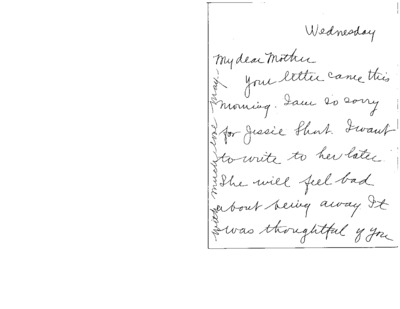 Wednesday
My dear Mother
Your letter came this
morning. I am so sorry
for Jessie Short. I want
to write to her later.
She will feel bad
about being away It
was thoughtful of you
With much love May.